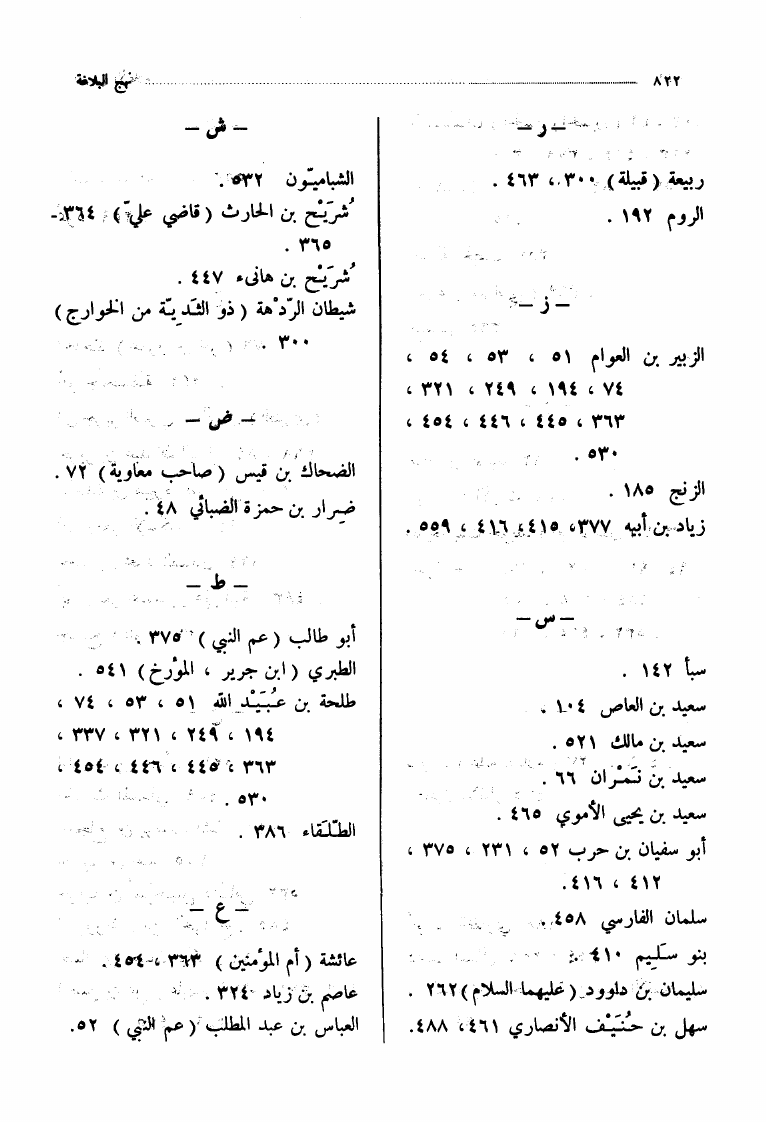 ٨٢٢ نهج البلاغة
– ر –
ربيعة (قبيلة) ٣٠٠ ، ٤٦٣ .
الروم ١٩٢ .
– ز –
الزبير بن العوام ٥١ ، ٥٣ ، ٥٤ ،
٧٤ ، ١٩٤ ، ٢٤٩ ، ٣٢١ ،
٣٦٣ ، ٤٤٥ ، ٤٤٦ ، ٤٥٤ ،
٥٣٠ .
الزنج ١٨٥ .
زياد بن أبيه ٣٧٧ ، ٤١٥ ، ٤١٦ ، ٥٥٩ .
– س –
سبأ ١٤٢ .
سعيد بن العاص ١٠٤ .
سعيد بن مالك ٥٢١ .
سعيد بن نَمْران ٦٦ .
سعيد بن يحيى الأموي ٤٦٥ .
أبو سفيان بن حرب ٥٢ ، ٢٣١ ، ٣٧٥ ،
٤١٢ ، ٤١٦ .
سلمان الفارسي ٤٥٨ .
بنو سَلِيم ٤١٠ .
سليمان بن داوود (عليهما السلام) ٢٦٢ .
سهل بن حُنَيْف الأنصاري ٤٦١ ، ٤٨٨ .
– ش –
الشباميّون ٥٣٢ .
شُرَيْح بن الحارث (قاضي عليّ) ٣٦٤ -
٣٦٥ .
شُرَيْح بن هانىء ٤٤٧ .
شيطان الرّدْهة (ذو الثَديّة من الخوارج)
٣٠٠ .
– ض –
الضحاك بن قيس (صاحب معاوية) ٧٢ .
ضِرار بن حمزة الضبائي ٤٨ .
– ط –
أبو طالب (عم النبي) ٣٧٥ .
الطبري (ابن جرير ، المؤرخ) ٥٤١ .
طلحة بن عُبَيْد الله ٥١ ، ٥٣ ، ٧٤ ،
١٩٤ ، ٢٤٩ ، ٣٢١ ، ٣٣٧ ،
٣٦٣ ، ٤٤٥ ، ٤٤٦ ، ٤٥٤ ،
٥٣٠ .
الطُلَقاء ٣٨٦ .
– ع –
عائشة (أم المؤمنين) ٣٦٣ ، ٤٥٤ .
عاصم بن زياد ٣٢٤ .
العباس بن عبد المطلب (عم النبي) ٥٢ .